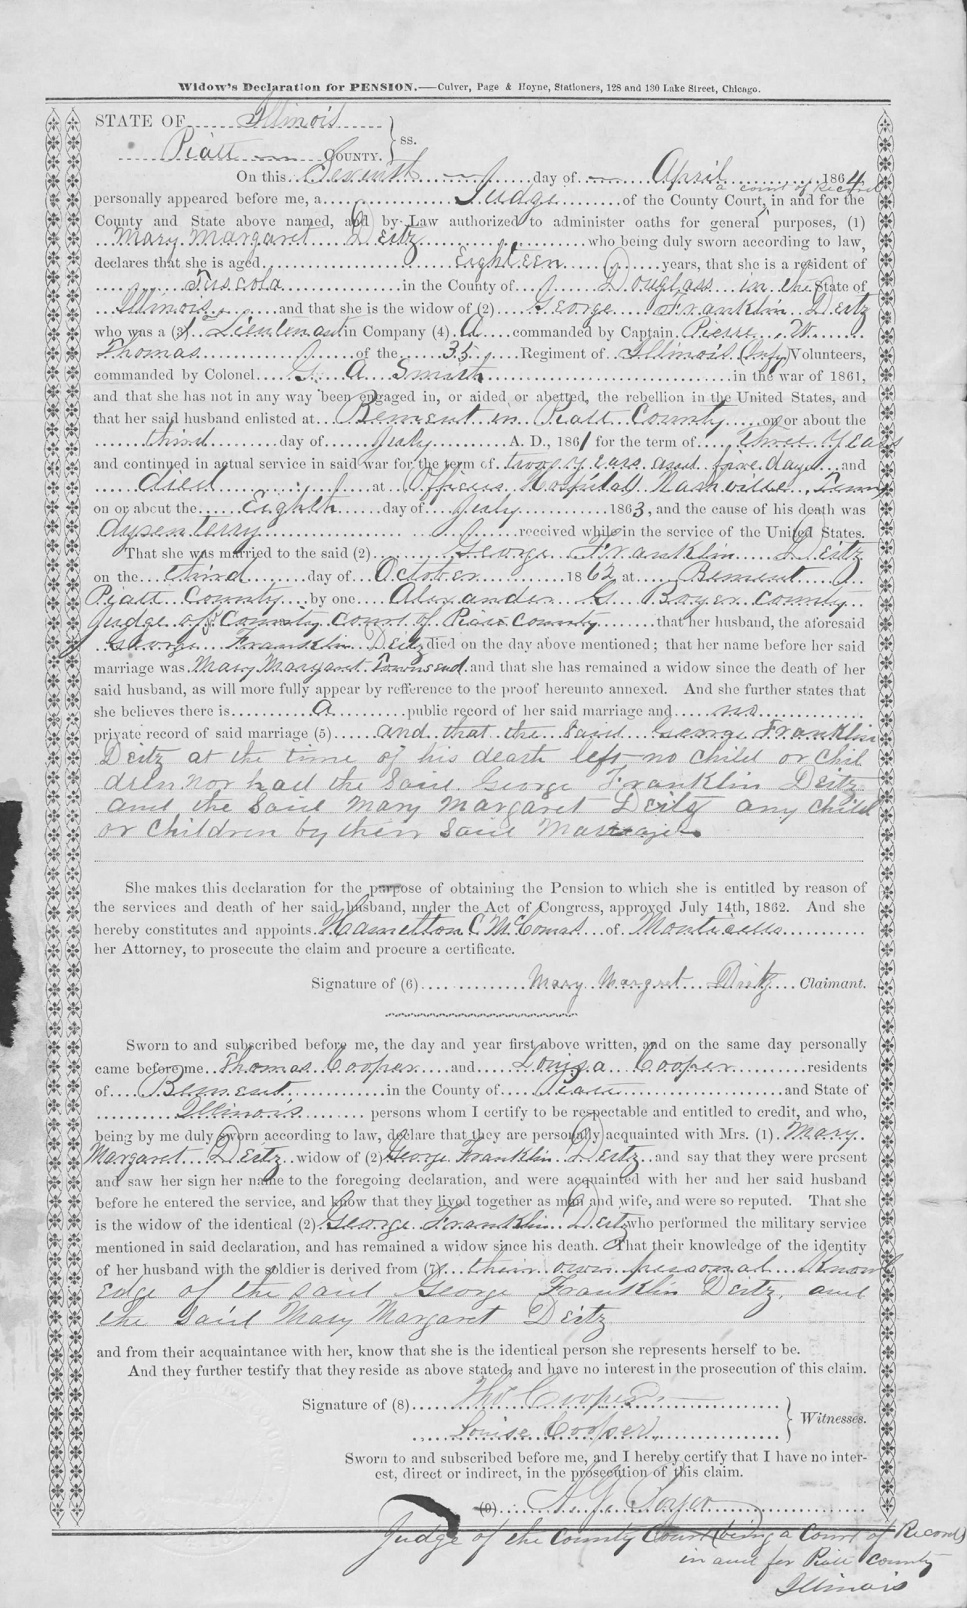 Widow's Declaration for PENSION.—Culver, Page & Hoyne, Stationers, 128 and 130 Lake Street, Chicago.
STATE OF Illinois
Piatt COUNTY. } ss.
On this Seventh day of April 1864
a court of Record
personally appeared before me, a Judge of the County Court, in and for the
County and State above named, and by Law authorized to administer oaths for general purposes, (1)
Mary Margaret Deitz who being duly sworn according to law,
declares that she is aged Eighteen years, that she is a resident of
Tuscola in the County of Douglass in the State of
Illinois and that she is the widow of (2) George Franklin Deitz
who was a (3) 1st Lieutenant in Company (4) A commanded by Captain Pierre W.
Thomas of the 35 Regiment of Illinois Infy Volunteers,
commanded by Colonel G. A Smith in the war of 1861,
and that she has not in any way been engaged in, or aided or abetted, the rebellion in the United States, and
that her said husband enlisted at Bement in Piatt County on or about the
third day of July A. D., 1861 for the term of three years
and continued in actual service in said war for the term of two years and five days and
died at Officers Hospital Nashville Tenn
on or about the Eighth day of July 1863, and the cause of his death was
dysenterry received while in the service of the United States.
That she was married to the said (2) George Franklin Deitz
on the third day of October 1862 at Bement
Piatt County by one Alexander G Boyer County
Judge of County Court of Piatt County that her husband, the aforesaid
George Franklin Deitz died on the day above mentioned; that her name before her said
marriage was Mary Margaret Townsend and that she has remained a widow since the death of her
said husband, as will more fully appear by refference to the proof hereunto annexed. And she further states that
she believes there is a public record of her said marriage and no
private record of said marriage (5) and that the said George Franklin
Deitz at the time of his death left no child or chil
dren nor had the said George Franklin Deitz
and the said Mary Margaret Deitz any child
or children by their said Marriage
She makes this declaration for the purpose of obtaining the Pension to which she is entitled by reason of
the services and death of her said husband, under the Act of Congress, approved July 14th, 1862. And she
hereby constitutes and appoints Hamelton C McComas of Monticello
her Attorney, to prosecute the claim and procure a certificate.
Signature of (6) Mary Margret Ditz Claimant.
Sworn to and subscribed before me, the day and year first above written, and on the same day personally
came before me Thomas Cooper and Louisa Cooper residents
of Bement in the County of Piatt and State of
Illinois persons whom I certify to be respectable and entitled to credit, and who,
being by me duly sworn according to law, declare that they are personally acquainted with Mrs. (1) Mary
Margaret Deitz widow of (2) George Franklin Deitz and say that they were present
and saw her sign her name to the foregoing declaration, and were acquainted with her and her said husband
before he entered the service, and know that they lived together as man and wife, and were so reputed. That she
is the widow of the identical (2) George Franklin Deitz who performed the military service
mentioned in said declaration, and has remained a widow since his death. That their knowledge of the identity
of her husband with the soldier is derived from (7) their own personal knowl
edge of the said George Franklin Deitz, and
the said Mary Margaret Deitz
and from their acquaintance with her, know that she is the identical person she represents herself to be.
And they further testify that they reside as above stated, and have no interest in the prosecution of this claim.
Signature of (8) Thos Cooper
Louise Cooper } Witnesses.
Sworn to and subscribed before me, and I hereby certify that I have no inter-
est, direct or indirect, in the prosecution of this claim.
(9) A. G. Boyer
Judge of the County Court (being a Court of Record)
in and for Piatt County
Illinois